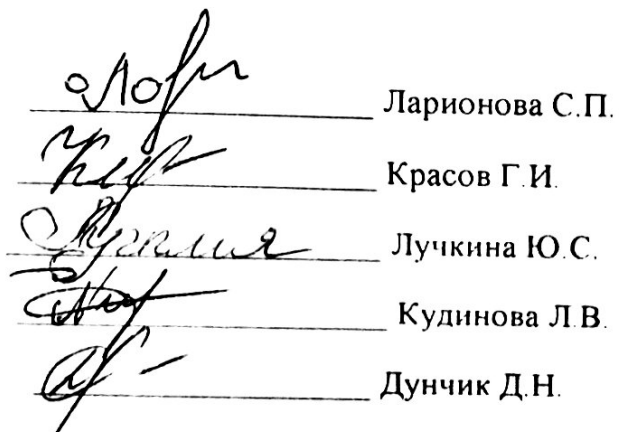 Ларионова С.П.
Красов Г.И.
Лучкина Ю.С.
Кудинова Л.В.
Дунчик Д.Н.